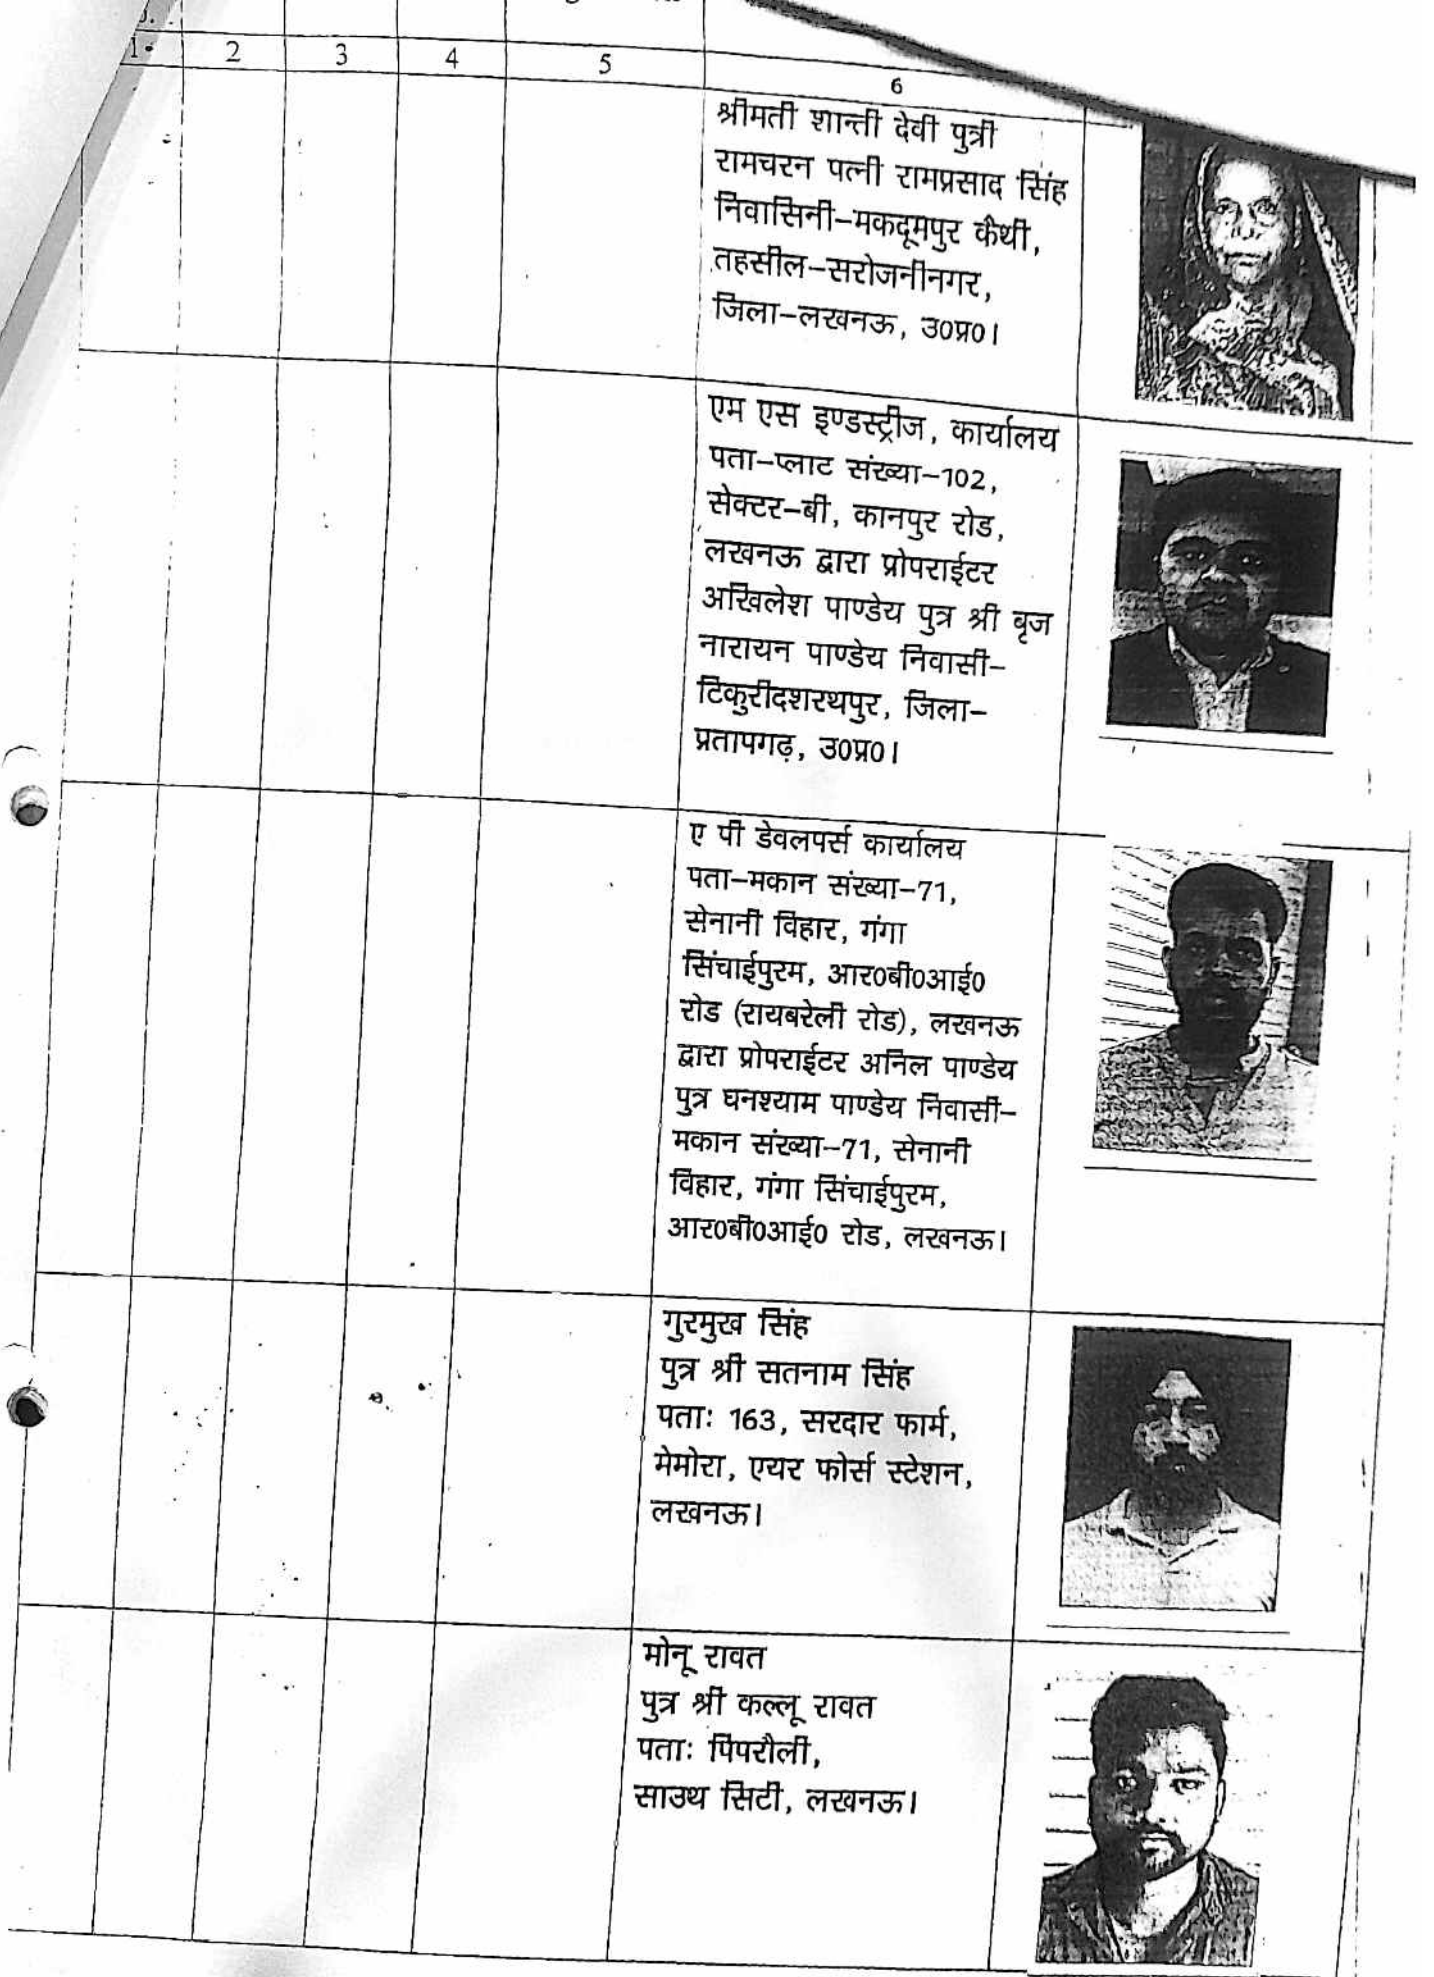 1 2 3 4 5 6
श्रीमती शान्ती देवी पुत्री
रामचरन पत्नी रामप्रसाद सिंह
निवासिनी–मकदूमपुर कैथी,
तहसील–सरोजनीनगर,
जिला–लखनऊ, उ0प्र0।
एम एस इण्डस्ट्रीज, कार्यालय
पता–प्लाट संख्या–102,
सेक्टर–बी, कानपुर रोड,
लखनऊ द्वारा प्रोपराईटर
अखिलेश पाण्डेय पुत्र श्री बृज
नारायन पाण्डेय निवासी–
टिकुरीदशरथपुर, जिला–
प्रतापगढ़, उ0प्र0।
ए पी डेवलपर्स कार्यालय
पता–मकान संख्या–71,
सेनानी विहार, गंगा
सिंचाईपुरम, आर0बी0आई0
रोड (रायबरेली रोड), लखनऊ
द्वारा प्रोपराईटर अनिल पाण्डेय
पुत्र घनश्याम पाण्डेय निवासी–
मकान संख्या–71, सेनानी
विहार, गंगा सिंचाईपुरम,
आर0बी0आई0 रोड, लखनऊ।
गुरमुख सिंह
पुत्र श्री सतनाम सिंह
पताः 163, सरदार फार्म,
मेमोरा, एयर फोर्स स्टेशन,
लखनऊ।
मोनू रावत
पुत्र श्री कल्लू रावत
पताः पिपरौली,
साउथ सिटी, लखनऊ।